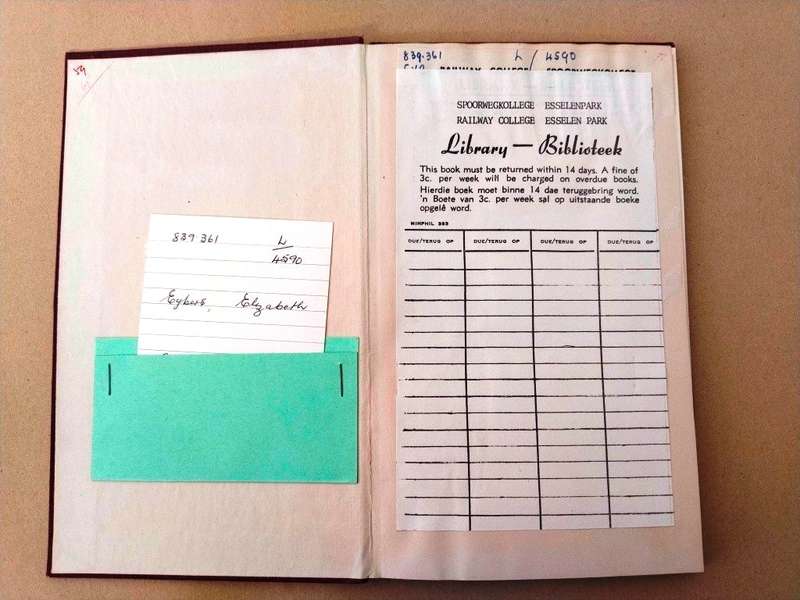 59
839 361
L
4590
Eybers, Elizabeth
839.361 L/4590
RAILWAY COLLEGE SPOORWEGKOLLEGE
SPOORWEGKOLLEGE ESSELENPARK
RAILWAY COLLEGE ESSELEN PARK
Library — Biblioteek
This book must be returned within 14 days. A fine of
3c. per week will be charged on overdue books.
Hierdie boek moet binne 14 dae teruggebring word.
'n Boete van 3c. per week sal op uitstaande boeke
opgelê word.
WINPHIL 252
DUE/TERUG OP DUE/TERUG OP DUE/TERUG OP DUE/TERUG OP